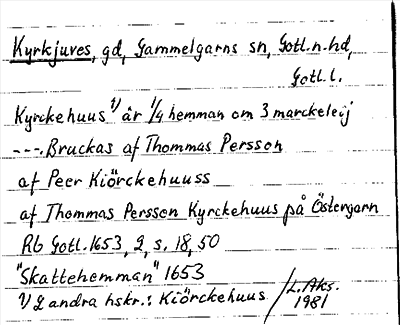 Kyrkjuves, gd, Gammelgarns sn, Gotl.n.hd,
Gotl.l.
Kyrckehuus 1/ är 1/4 hemman om 3 marckeleij
---. Bruckas af Thommas Persson
af Peer Kiörckehuuss
af Thommas Persson Kyrckehuus på Östergarn
Rb Gotl. 1653, 2, s. 18, 50
"Skattehemman" 1653
1/ 2 andra hskr.: Kiörckehuus /L. Aks.
1981